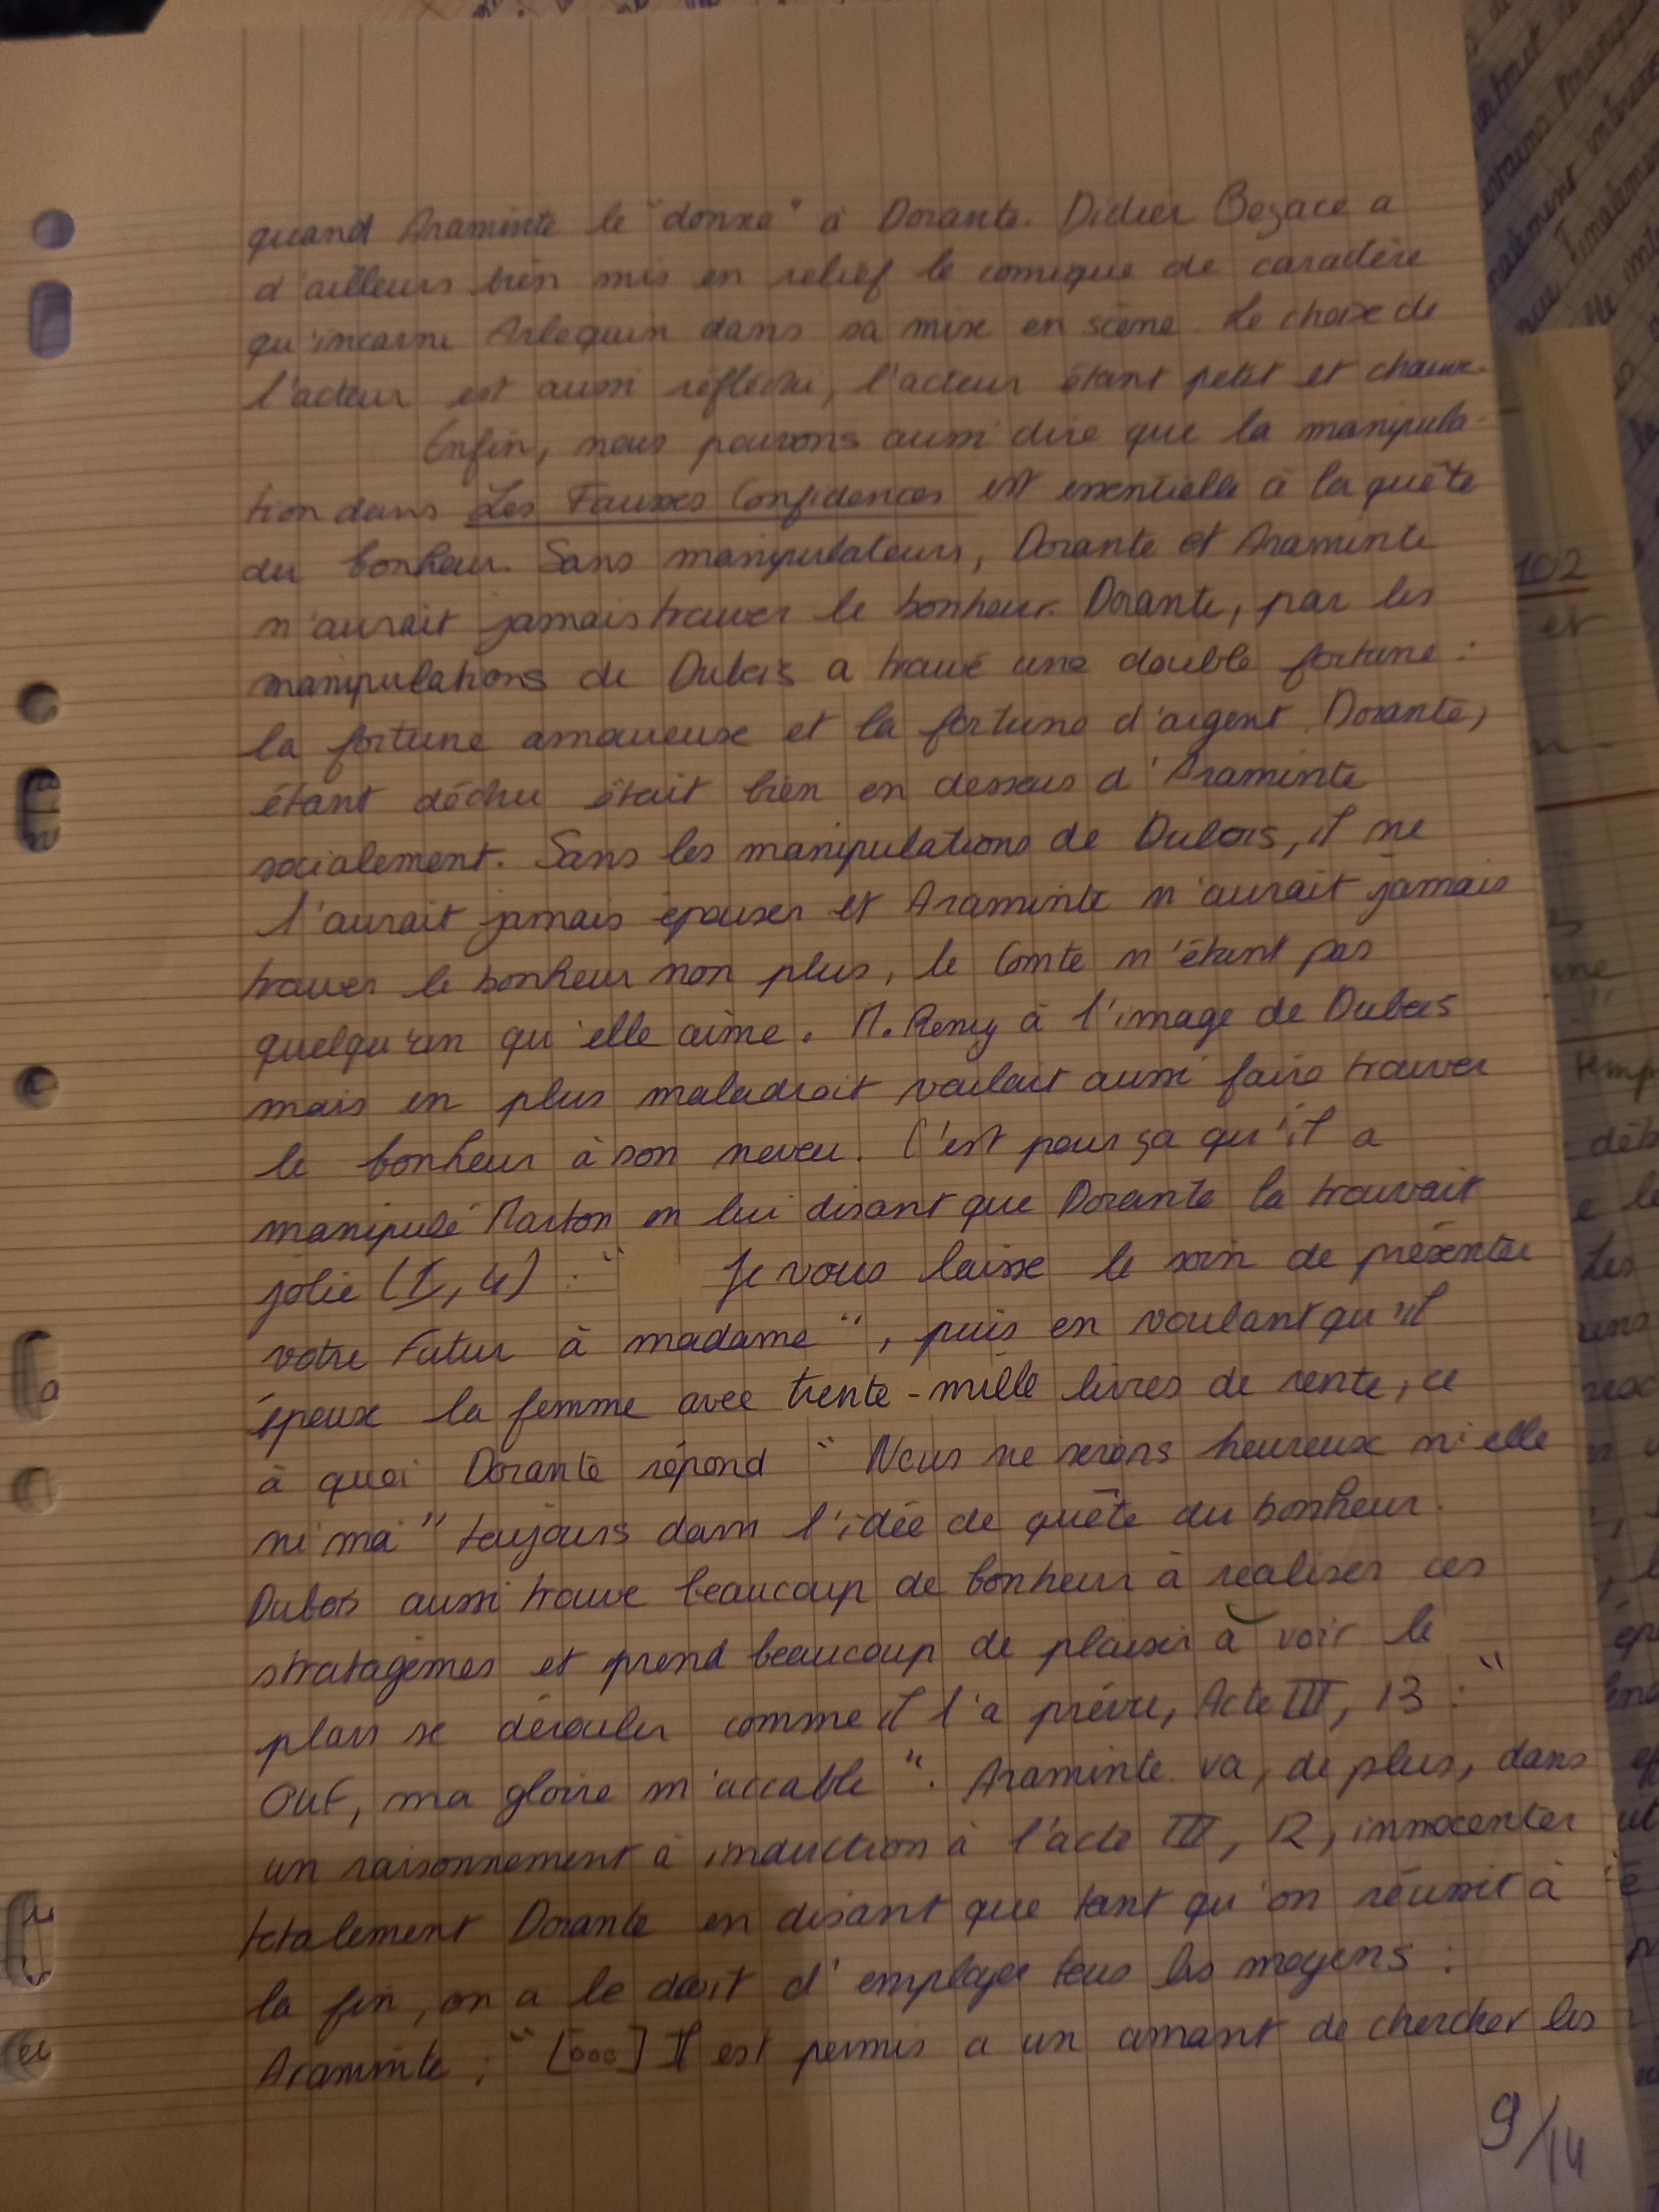 quand Araminte le "donne" à Dorante. Didier Bezace a
d'ailleurs bien mis en relief le comique de caractère
qu'incarne Arlequin dans sa mise en scène. Le choix de
l'acteur est aussi réfléchi, l'acteur étant petit et chauve.
Enfin, nous pouvons aussi dire que la manipula-
tion dans Les Fausses Confidences est essentielle à la quête
du bonheur. Sans manipulateurs, Dorante et Araminte
n'aurait jamais trouver le bonheur. Dorante, par les
manipulations de Dubois a trouvé une double fortune :
la fortune amoureuse et la fortune d'argent. Dorante,
étant déchu était bien en dessous d'Araminte
socialement. Sans les manipulations de Dubois, il ne
l'aurait jamais épouser et Araminte n'aurait jamais
trouver le bonheur non plus, le Comte n'étant pas
quelqu'un qu'elle aime. M. Remy à l'image de Dubois
mais en plus maladroit voulait aussi faire trouver
le bonheur à son neveu. C'est pour ça qu'il a
manipulé Marton en lui disant que Dorante la trouvait
jolie (I, 4) : " Je vous laisse le soin de présenter
votre Futur à madame", puis en voulant qu'il
épouse la femme avec trente-mille livres de rente, ce
à quoi Dorante répond " Nous ne serons heureux ni elle
ni moi" toujours dans l'idée de quête du bonheur.
Dubois aussi trouve beaucoup de bonheur à realiser ces
stratagèmes et prend beaucoup de plaisir à voir le
plan se dérouler comme il l'a prévu, Acte III, 13 : "
Ouf, ma gloire m'accable". Araminte va, de plus, dans
un raisonnement à induction à l'acte III, 12, innocenter
totalement Dorante en disant que tant qu'on réussit à
la fin, on a le droit d'employer tous les moyens :
Araminte : " [...] Il est permis a un amant de chercher les
9/14
102
et